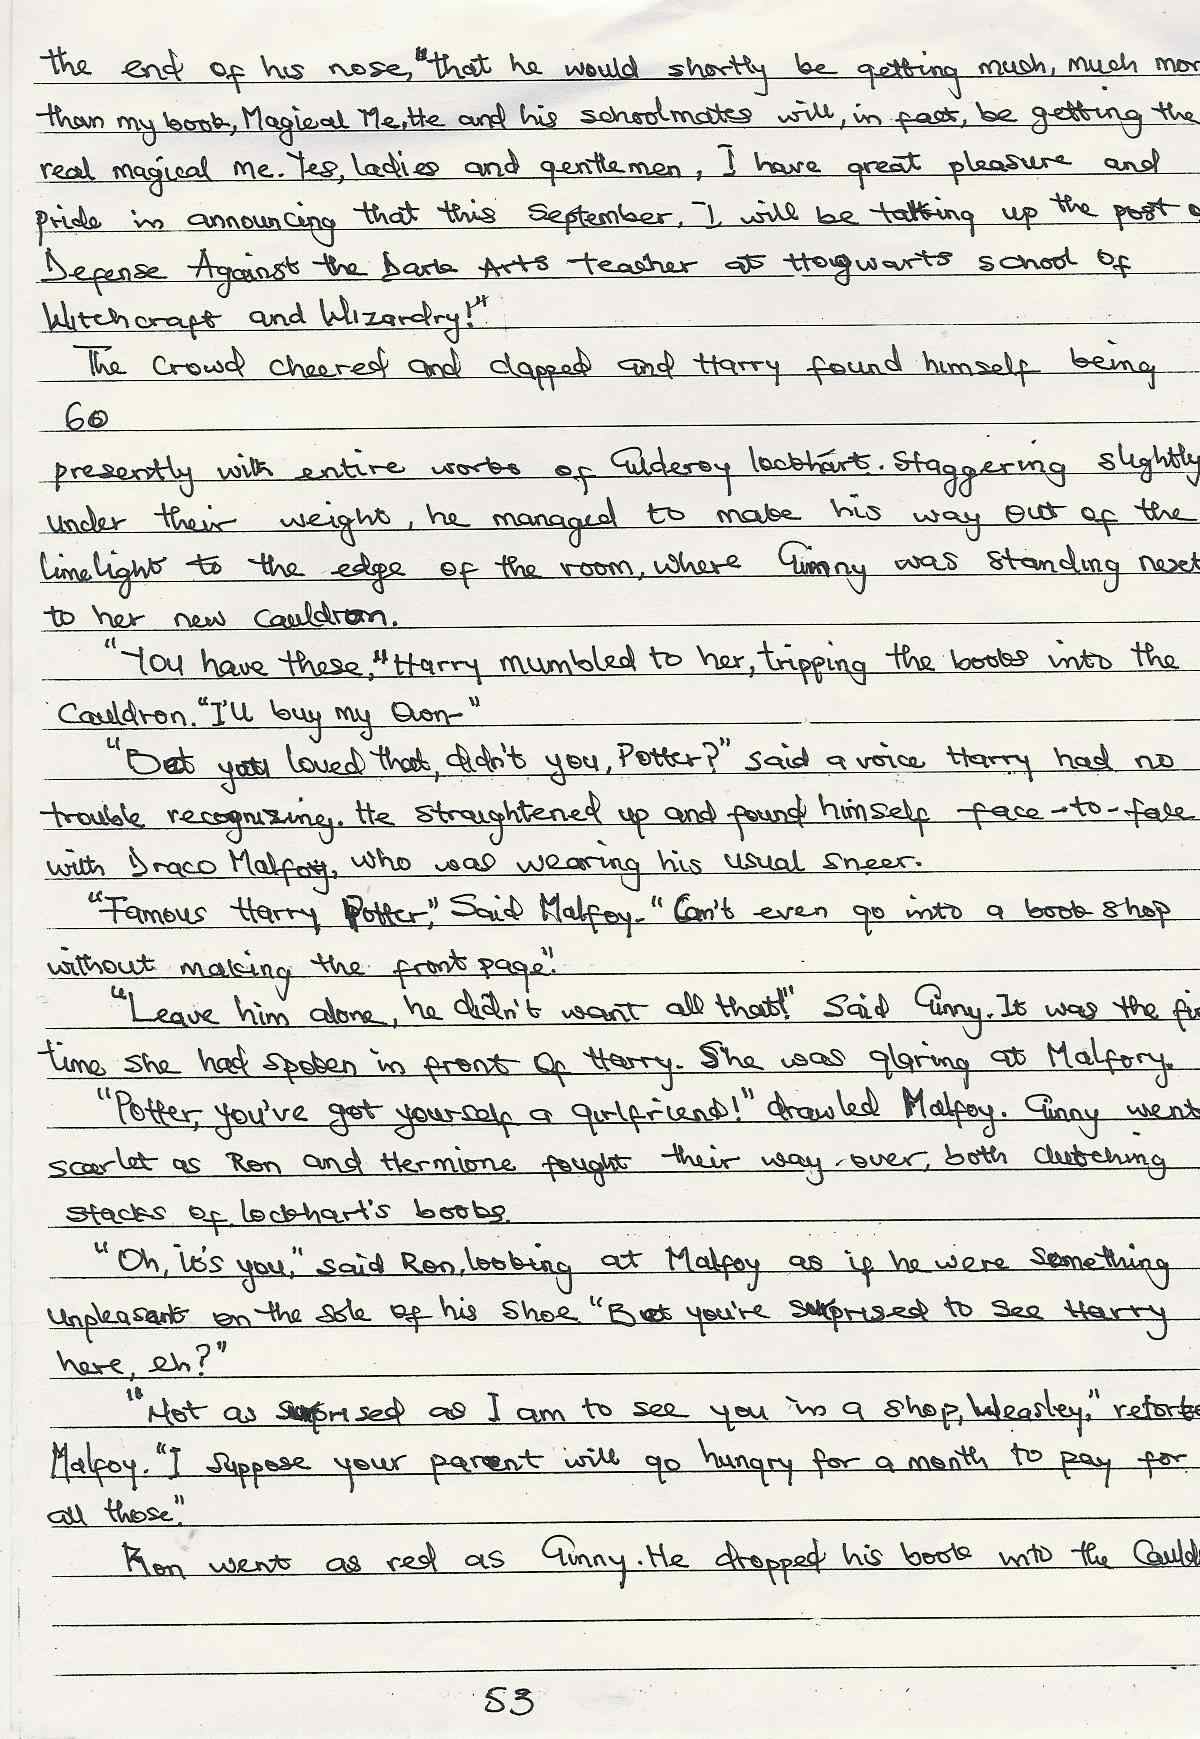 the end of his nose, "that he would shortly be getting much, much mor
than my book, Magical Me, He and his schoolmates will, in fact, be getting the
real magical me. Yes, ladies and gentlemen, I have great pleasure and
pride in announcing that this September, I will be taking up the post o
Defense Against the Dark Arts teacher at Hogwarts school of
Witchcraft and Wizardry!"
The crowd cheered and clapped and Harry found himself being
60
presently with entire works of Gilderoy lockhart. Staggering slightly
under their weight, he managed to make his way out of the
limelight to the edge of the room, where Ginny was standing next
to her new cauldron.
"You have these," Harry mumbled to her, tripping the books into the
Cauldron. "I'll buy my Own-"
"Bet you loved that, didn't you, Potter?" said a voice Harry had no
trouble recognizing. He straightened up and found himself face-to-face
with Draco Malfoy, who was wearing his usual sneer.
"Famous Harry Potter," Said Malfoy. "Can't even go into a book shop
without making the front page."
"Leave him alone, he didn't want all that!" Said Ginny. It was the fi
time she had spoken in front of Harry. She was glaring at Malfory.
"Potter, you've got yourself a girlfriend!" drawled Malfoy. Ginny went
scarlet as Ron and Hermione fought their way over, both clutching
stacks of lockhart's books.
"Oh, it's you," said Ron, looking at Malfoy as if he were something
unpleasant on the sole of his shoe "Bet you're surprised to see Harry
here, eh?"
"Not as surprised as I am to see you in a shop, Weasley," retorte
Malfoy. "I suppose your parent will go hungry for a month to pay for
all those."
Ron went as red as Ginny. He dropped his book into the Cauld
53